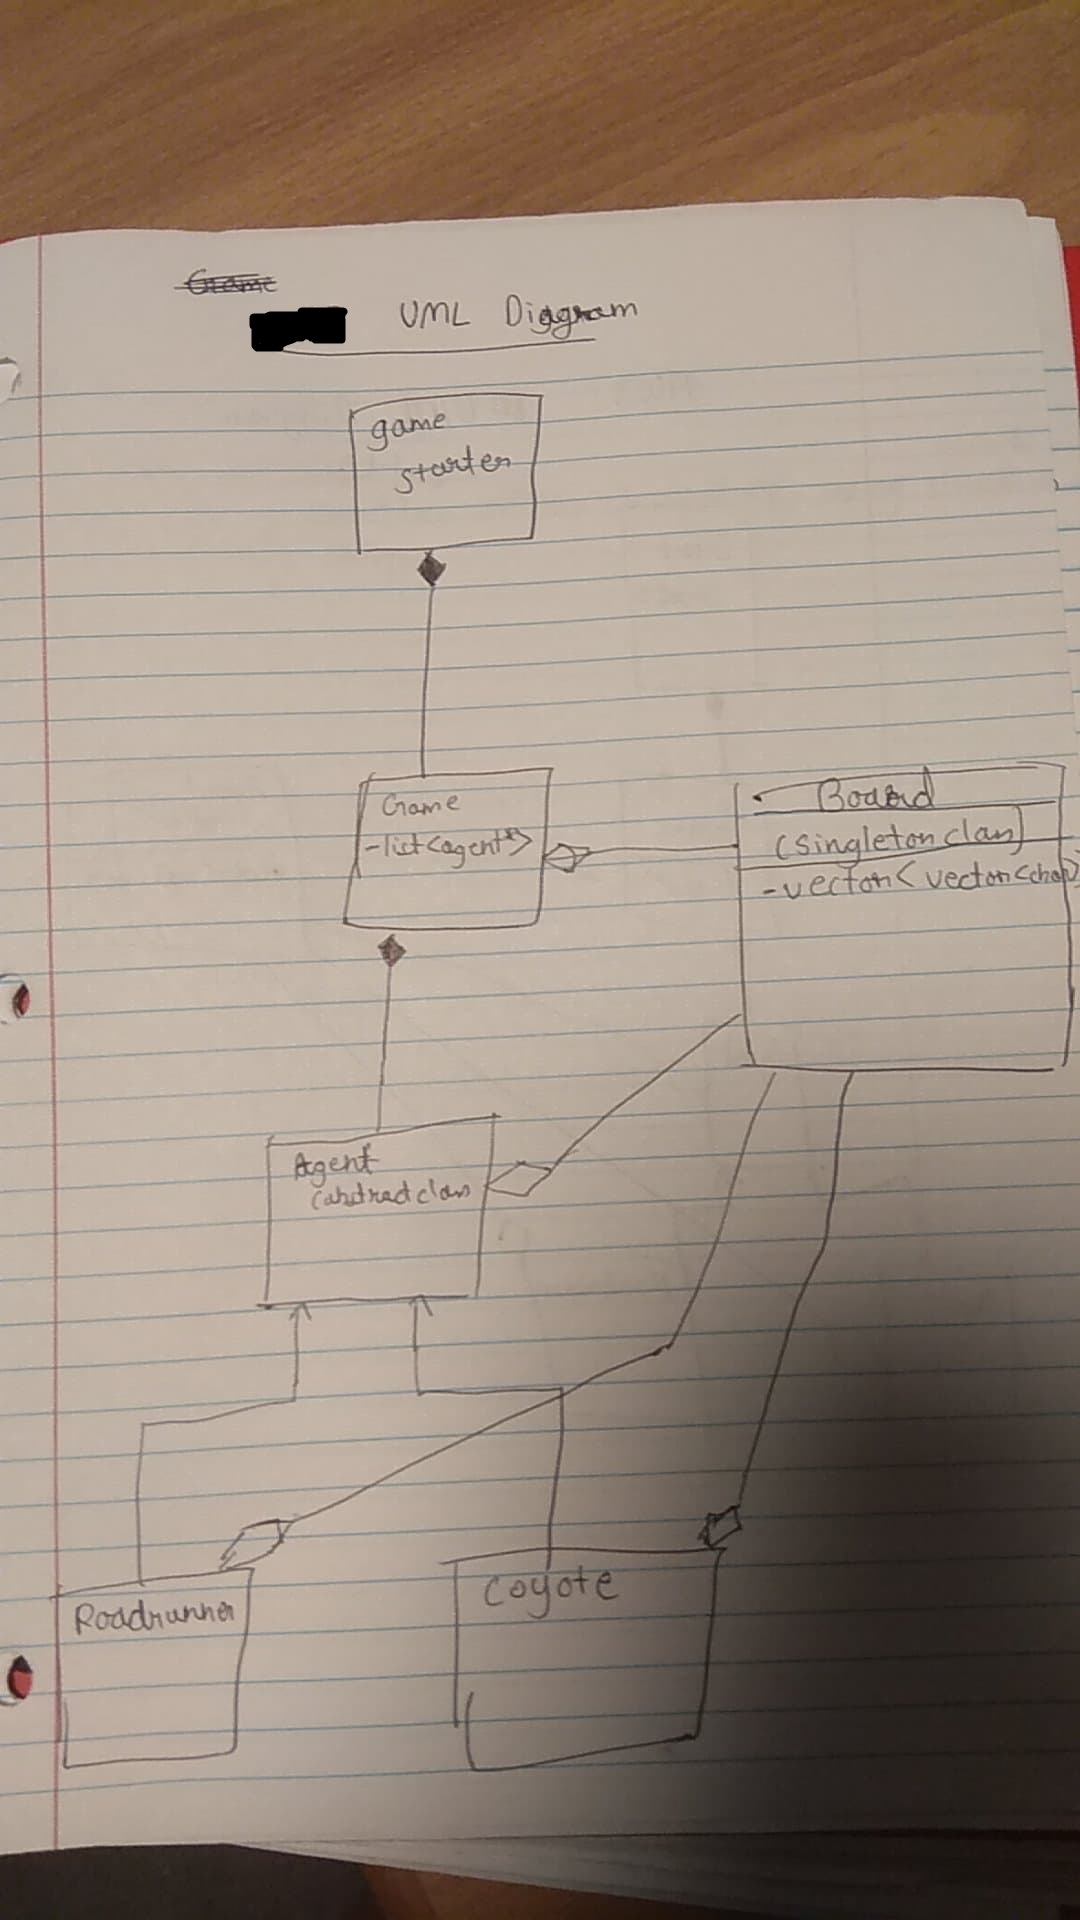 Game
UML Diagram
game
starter
Game
-list<agent*>
Board
(singleton class)
-vector<vector<char>
Agent
(abstract class
Roadrunner
Coyote